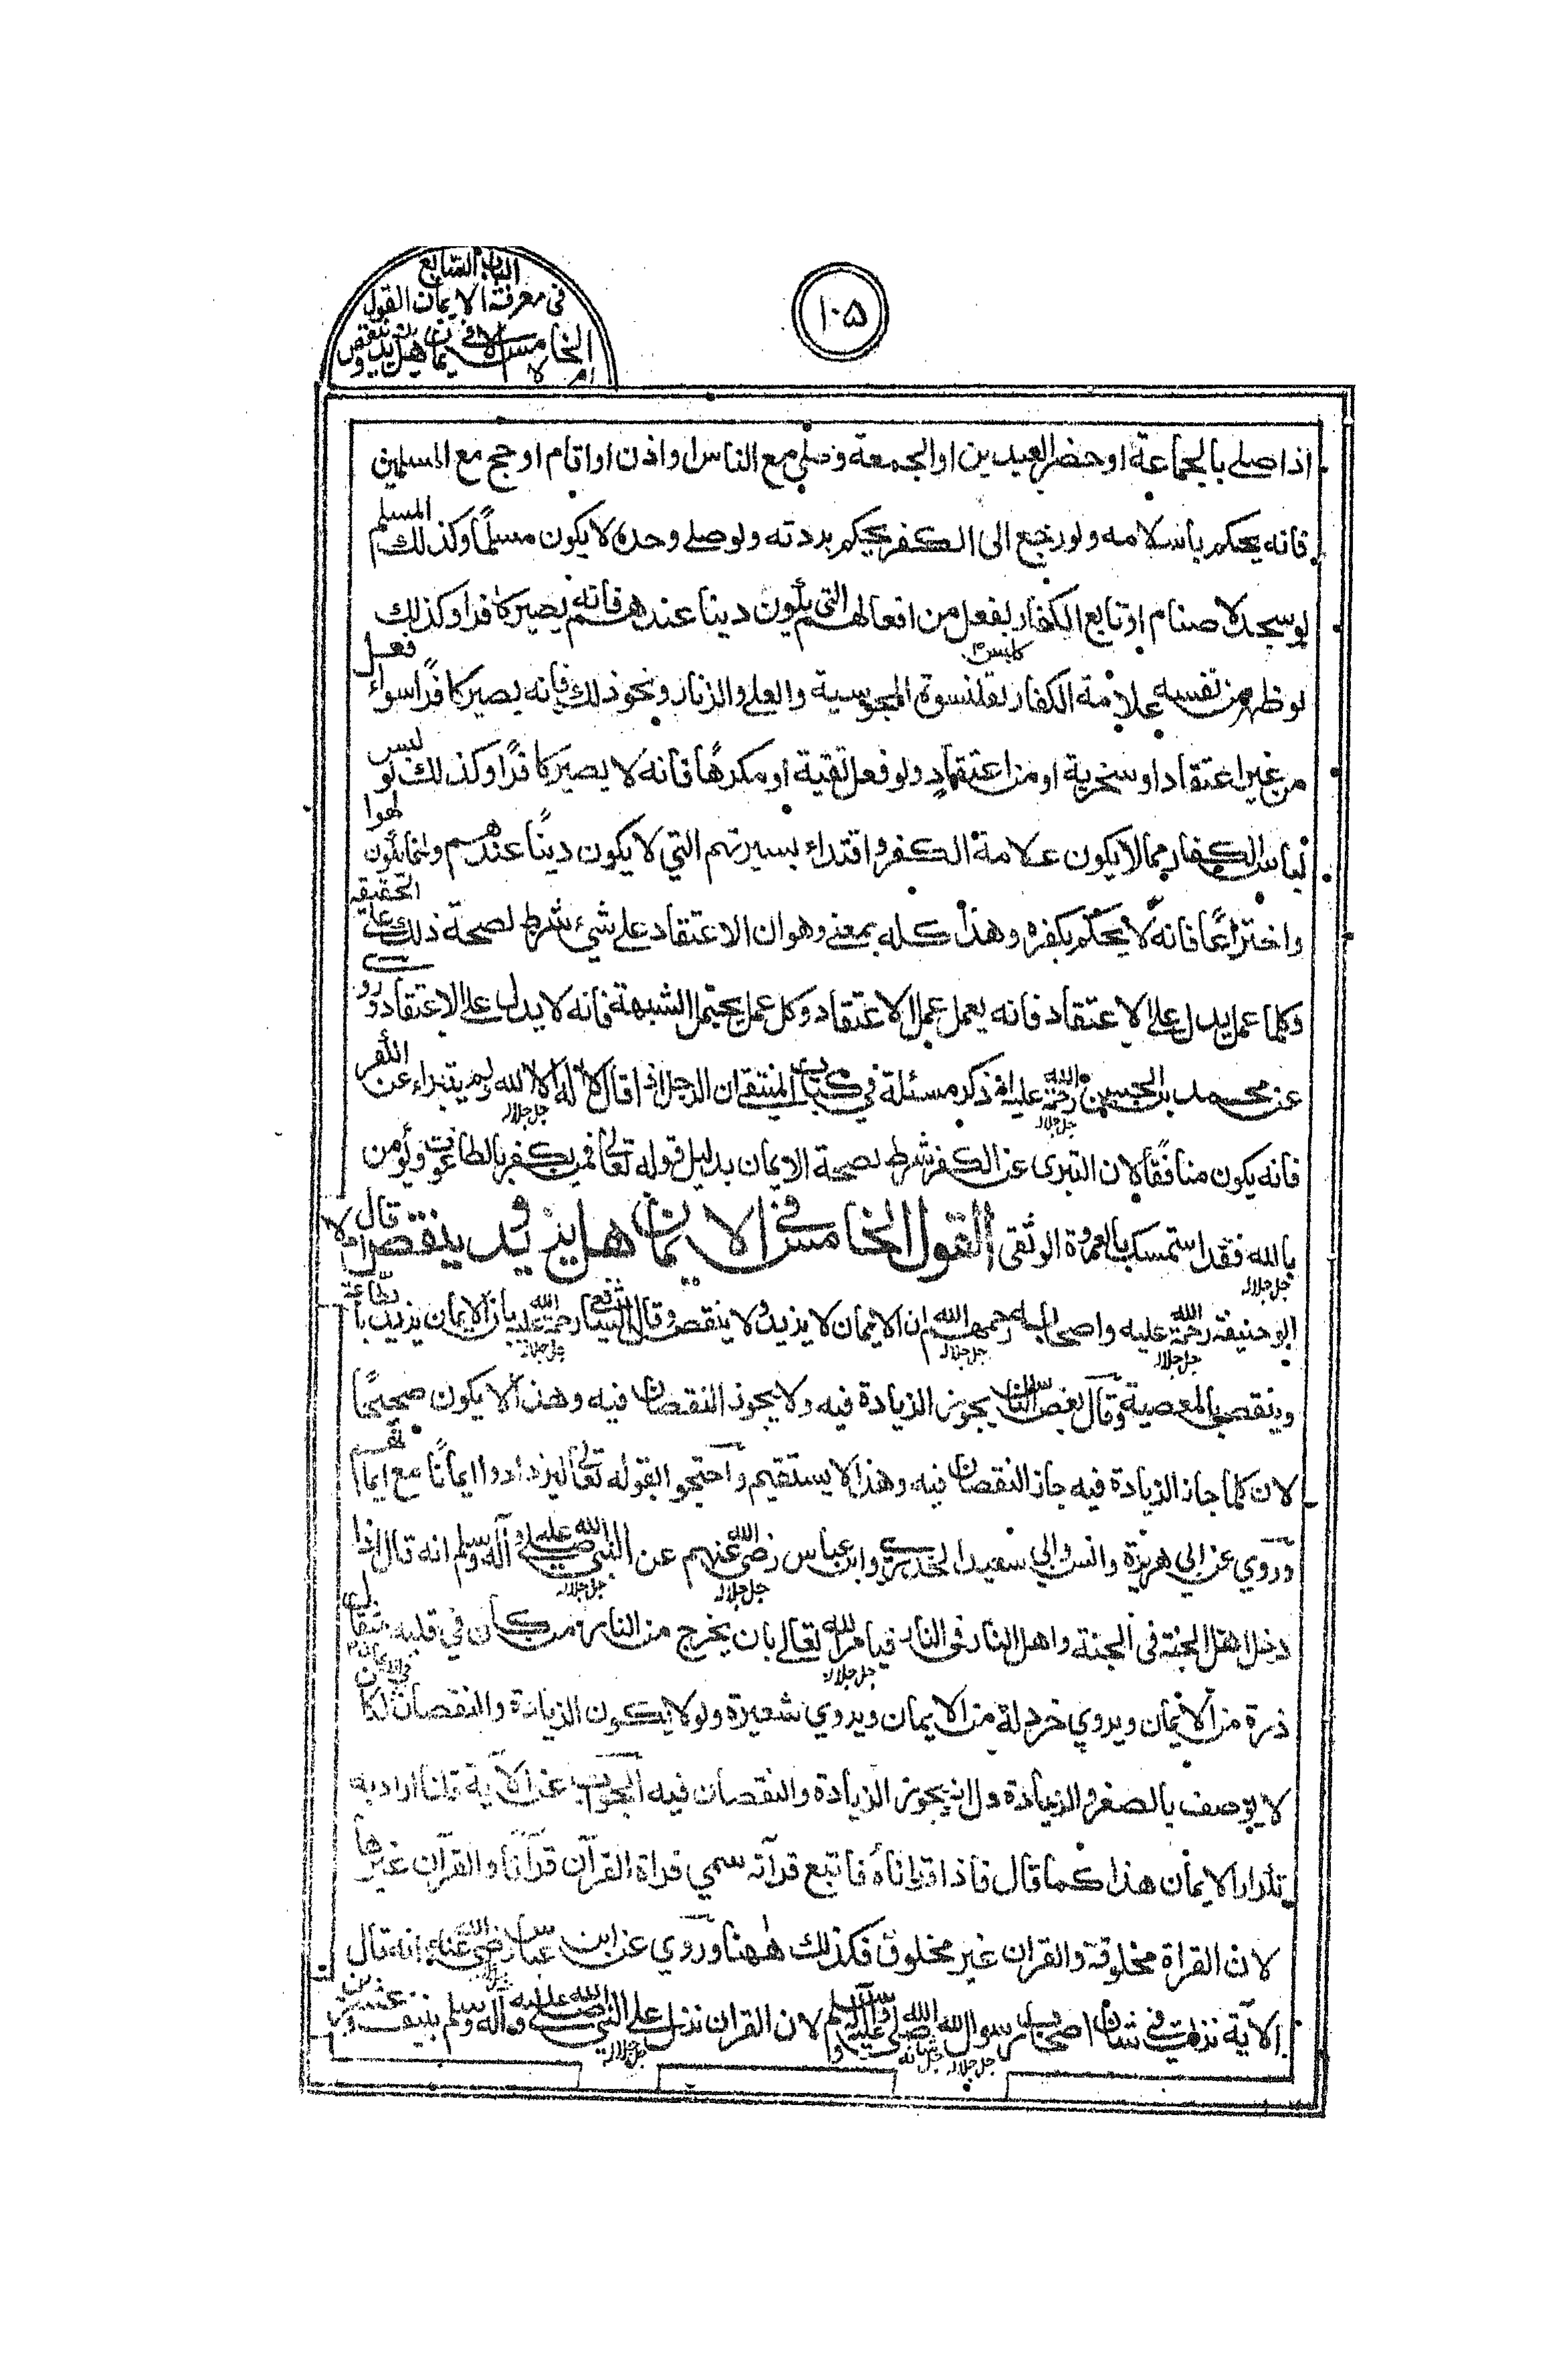 الباب السابع
في معرفة الايمان القول
الخامس في الايمان هل يزيد وينقص
ام لا
١٠٥
اذا صلى بالجماعة او حضر العيدين او الجمعة وصلى مع الناس او اذن او اقام او حج مع المسلمين
فانه يحكم باسلامه ولو رجع الى الكفر يحكم بردته ولو صلى وحده لا يكون مسلمًا وكذلك المسلم
لو سجد لاصنام او تابع الكفار بفعل من افعالهم التي يأتون دينا عندهم فانه يصير كافرا وكذلك
لو ظهر من نفسه علامة الكفار بقلنسوة المجوسية والعلي والزنار ونحو ذلك فانه يصير كافرًا سواء فعل
من غير اعتقاد او سخرية او من اعتقاد ولو فعل تقية او مكرهًا فانه لا يصير كافرًا وكذلك لو لبس
لباس الكفار مما لا يكون علامة الكفر واقتداء بسيرتهم التي لا يكون دينًا عندهم وانما يأتون لهوا
واختراعًا فانه لا يحكم بكفره وهذا كله بمعنى وهو ان الاعتقاد على شيء شرط لصحة ذلك على التحقيقة
وكلما عمل يدل على الاعتقاد فانه يعمل عمل الاعتقاد وكل عمل يحتمل الشبهة فانه لا يدل على الاعتقاد وروي
عن محمد بن الحسن رحمة الله عليه انه ذكر مسئلة في كتاب المنتقى ان الرجل اذا قال لا اله الا الله ولم يتبراء عن الكفر
فانه يكون منافقًا لان التبرى عن الكفر شرط لصحة الايمان بدليل قوله تعالى فمن يكفر بالطاغوت ويؤمن
بالله فقد استمسك بالعروة الوثقى القول الخامس في الايمان هل يزيد وينقص ام لا قال
ابو حنيفة رحمة الله عليه واصحابه رحمهم الله ان الايمان لا يزيد ولا ينقص وقال الشافعي رحمة الله عليه بان الايمان يزيد بالطاعة
وينقص بالمعصية وقال بعض الناس يجوز الزيادة فيه ولا يجوز النقصان فيه وهذا لا يكون صحيحًا
لان كلما جاز الزيادة فيه جاز النقصان فيه وهذا لا يستقيم واحتجوا بقوله تعالى ليزدادوا ايمانًا مع ايمانهم
وروي عن ابي هريرة وانس وابي سعيد الخدري وابن عباس رضي الله عنهم عن النبي صلى الله عليه وآله وسلم انه قال اذا
دخل اهل الجنة في الجنة واهل النار في النار فيامر الله تعالى بان يخرج من النار من كان في قلبه مثقال
ذرة من الايمان ويروي خردلة من الايمان ويروي شعيرة ولو لا يكون الزيادة والنقصان في الايمان لكان
لا يوصف بالصغر والزيادة دل انه يجوز الزيادة والنقصان فيه الجواب عن الآية قلنا اراد به
تكرار الايمان هذا كما قال فاذا قراناه فاتبع قرآنه سمي قراة القرآن قرآنًا والقرآن غيرها
لان القراة مخلوقة والقران غير مخلوق فكذلك ههنا وروي عن ابن عباس رضي الله عنه انه قال
الآية نزلت في شان اصحاب رسول الله صلى الله عليه وآله وسلم لان القران نزل على النبي صلى الله عليه وآله وسلم بنيف وعشرين